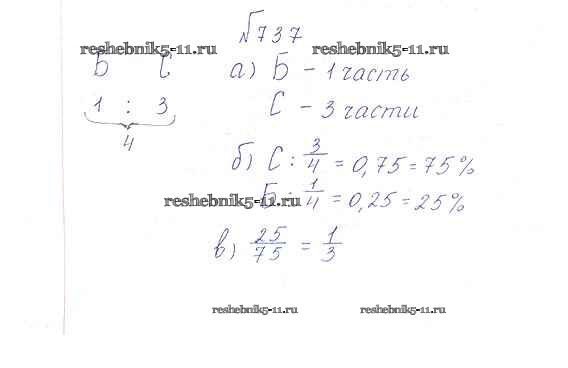 №737
reshebnik5-11.ru reshebnik5-11.ru
Б С
1 : 3
4
а) Б – 1 часть
С – 3 части
б) С : 3/4 = 0,75 = 75%
reshebnik5-11.ru
Б : 1/4 = 0,25 = 25%
в) 25/75 = 1/3
reshebnik5-11.ru reshebnik5-11.ru